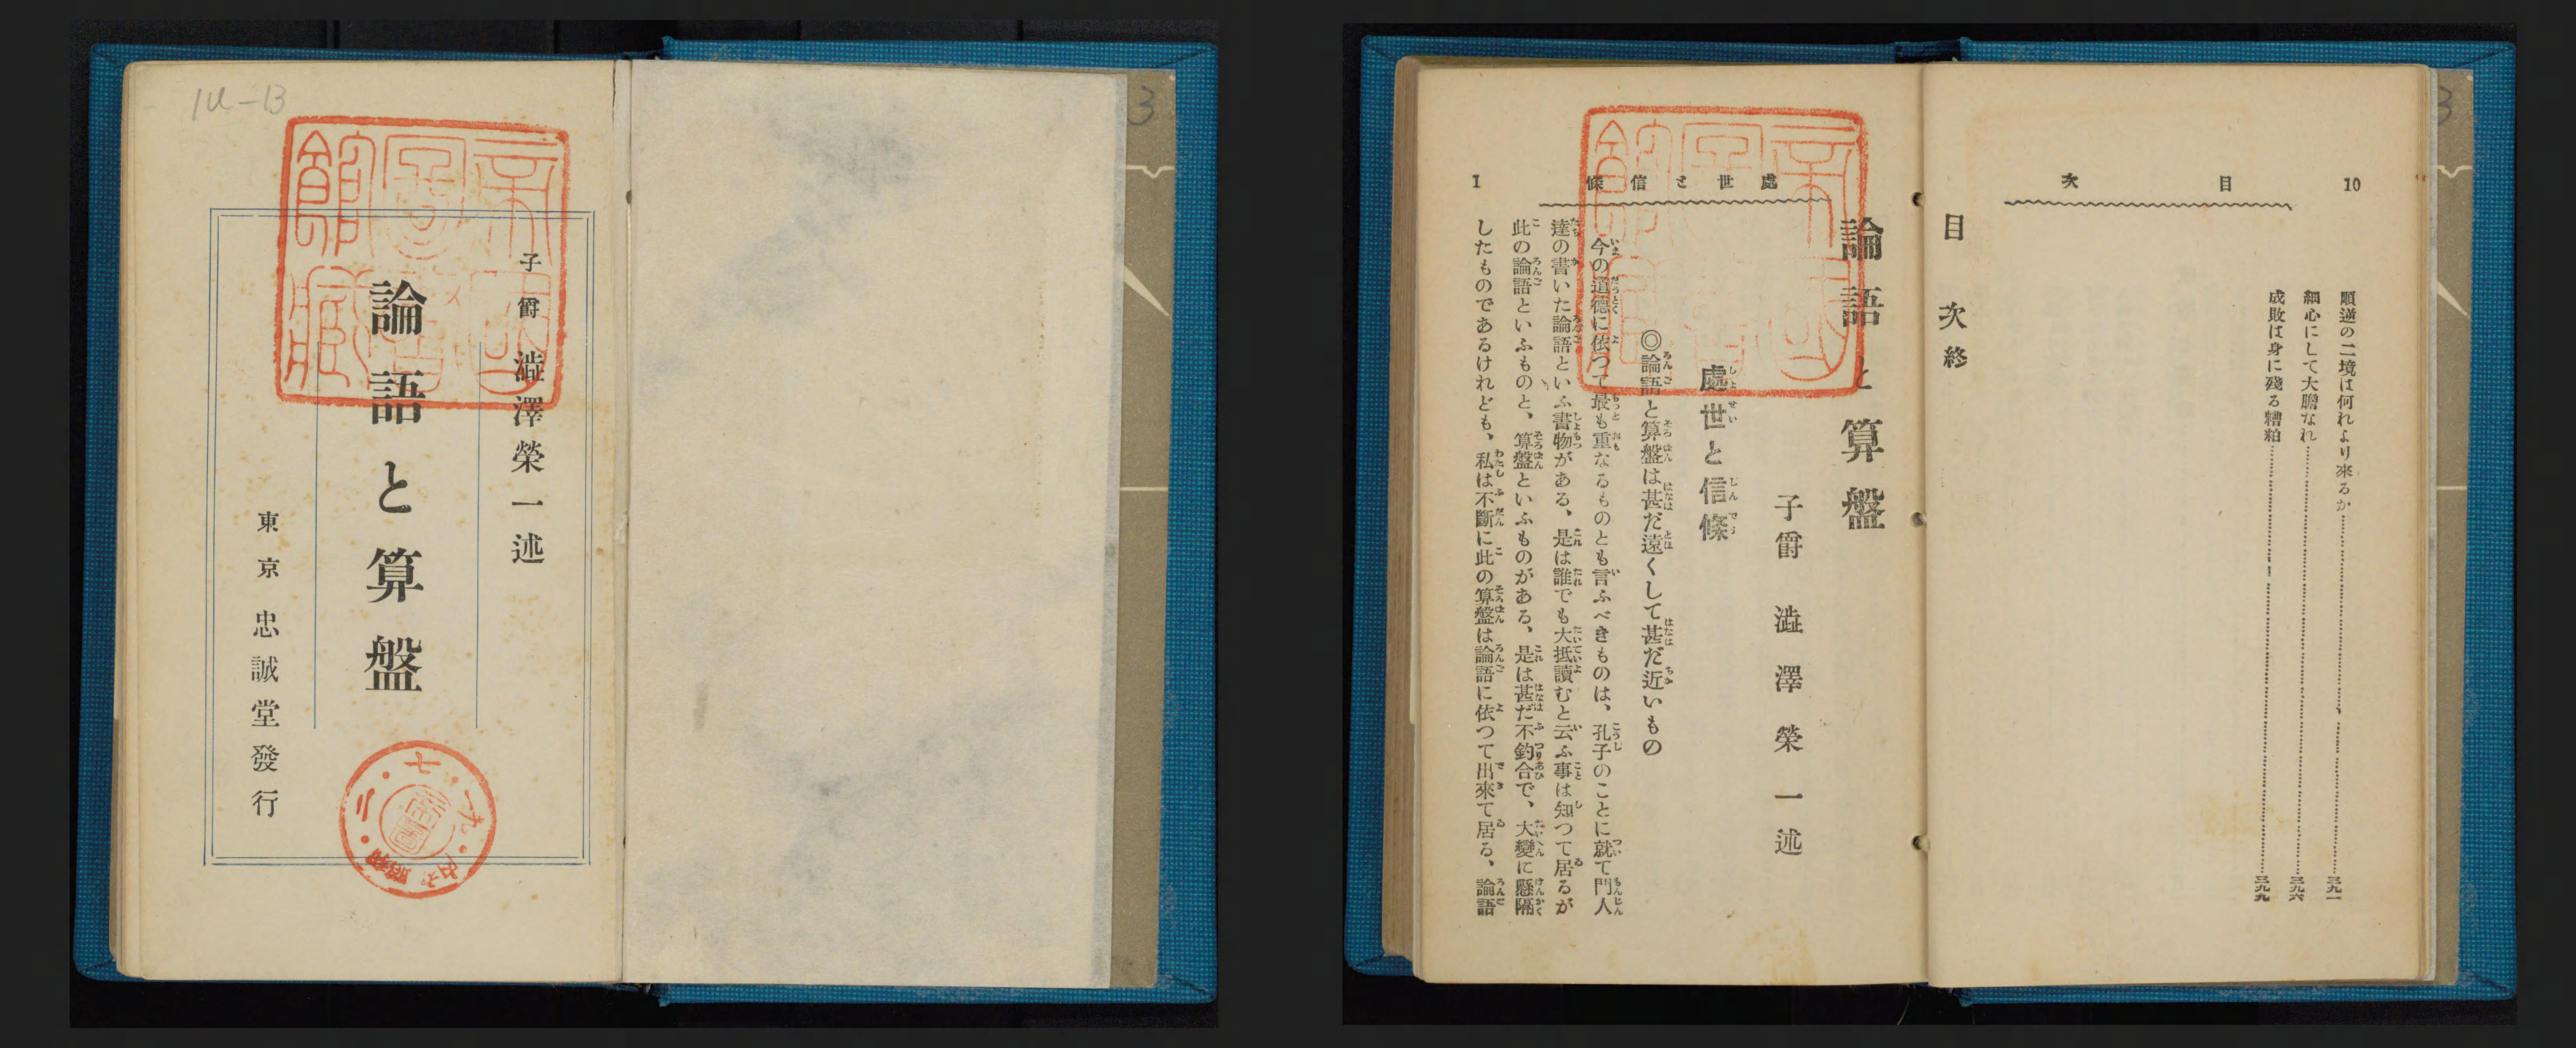 14-13
子爵 澁澤榮一述
論語と算盤
東京 忠誠堂發行
帝國圖書館藏
3
10
目次
順逆の二境は何れより來るか……三九一
細心にして大膽なれ……三九六
成敗は身に殘る糟粕……三九九
目次終
處世と信條
1
論語と算盤
子爵 澁澤榮一述
處世と信條
◎論語と算盤は甚だ遠くして甚だ近いもの
今の道德に依つて最も重なるものとも言ふべきものは、孔子のことに就て門人
達の書いた論語といふ書物がある、是は誰でも大抵讀むと云ふ事は知つて居るが
此の論語といふものと、算盤といふものがある、是は甚だ不釣合で、大變に懸隔
したものであるけれども、私は不斷に此の算盤は論語に依つて出來て居る、論語